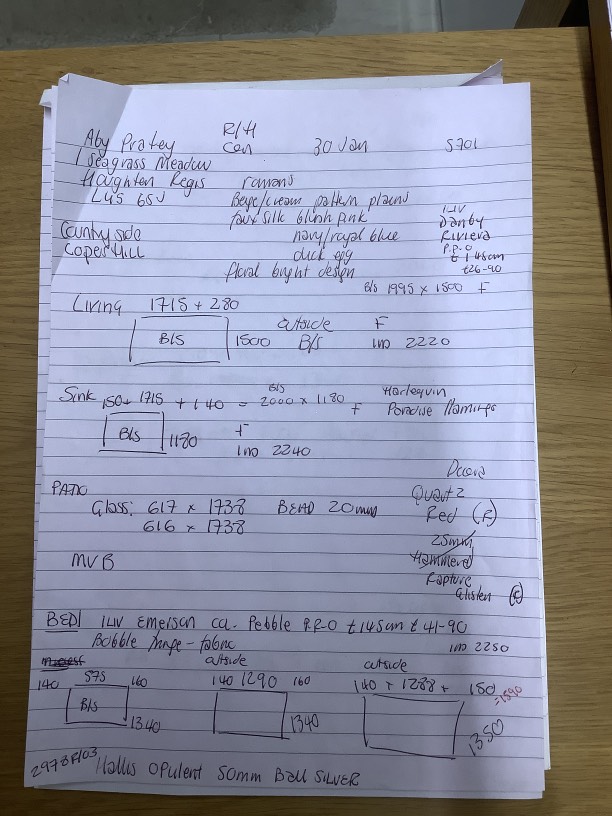 Aby Pratey R/H Con 30 Jan S701
1 Seagrass Meadow
Houghten Regis romans
LU5 6SJ Beige/cream pattern plains
faux silk blush pink
Countryside navy/royal blue
Copers Hill duck egg
floral bright design
ILIV
Danby
Riviera
P.P.O
£ 148cm
£26-90
B/S 1995 x 1500 F
Living 1715 + 280
B/S 1500 outside B/S F
IND 2220
Sink 150+ 1715 + 140 = B/S 2000 x 1180 F Harlequin
Paradise flamingo
B/S 1180 F
IND 2240
PATIO
Glass: 617 x 1738 BEAD 20mm
616 x 1738
MVB
Decora
Quartz
Red (R)
25mm
Hammered
Rapture
Glisten (E)
BED1 ILIV Emerson ca. Pebble P.R.O £145cm £ 41-90
Bobble fringe - fabric IND 2250
inrecess
140 575 160
B/S 1340
outside
140 1290 160
1340
outside
140 + 1288 + 150
=1590
1350
2978R/03 Hallis Opulent 50mm Ball SILVER